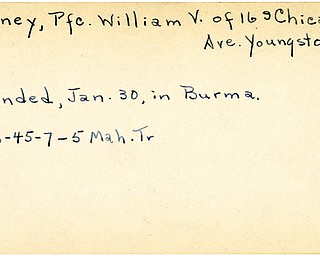 ney, Pfc. William V. of 169 Chica
Ave. Youngsto
nded, Jan. 30, in Burma.
-45-7-5 Mah. Tr